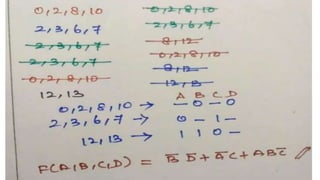 0,2,8,10
2,3,6,7
2,3,6,7
2,3,6,7
0,2,8,10
12,13
0,2,8,10
2,3,6,7
8,12
0,2,8,10
8,12
12,13
A B C D
0,2,8,10 → -0-0
2,3,6,7 → 0-1-
12,13 → 110-
F(A,B,C,D) = B̅ D̅ + A̅ C + A B C̅